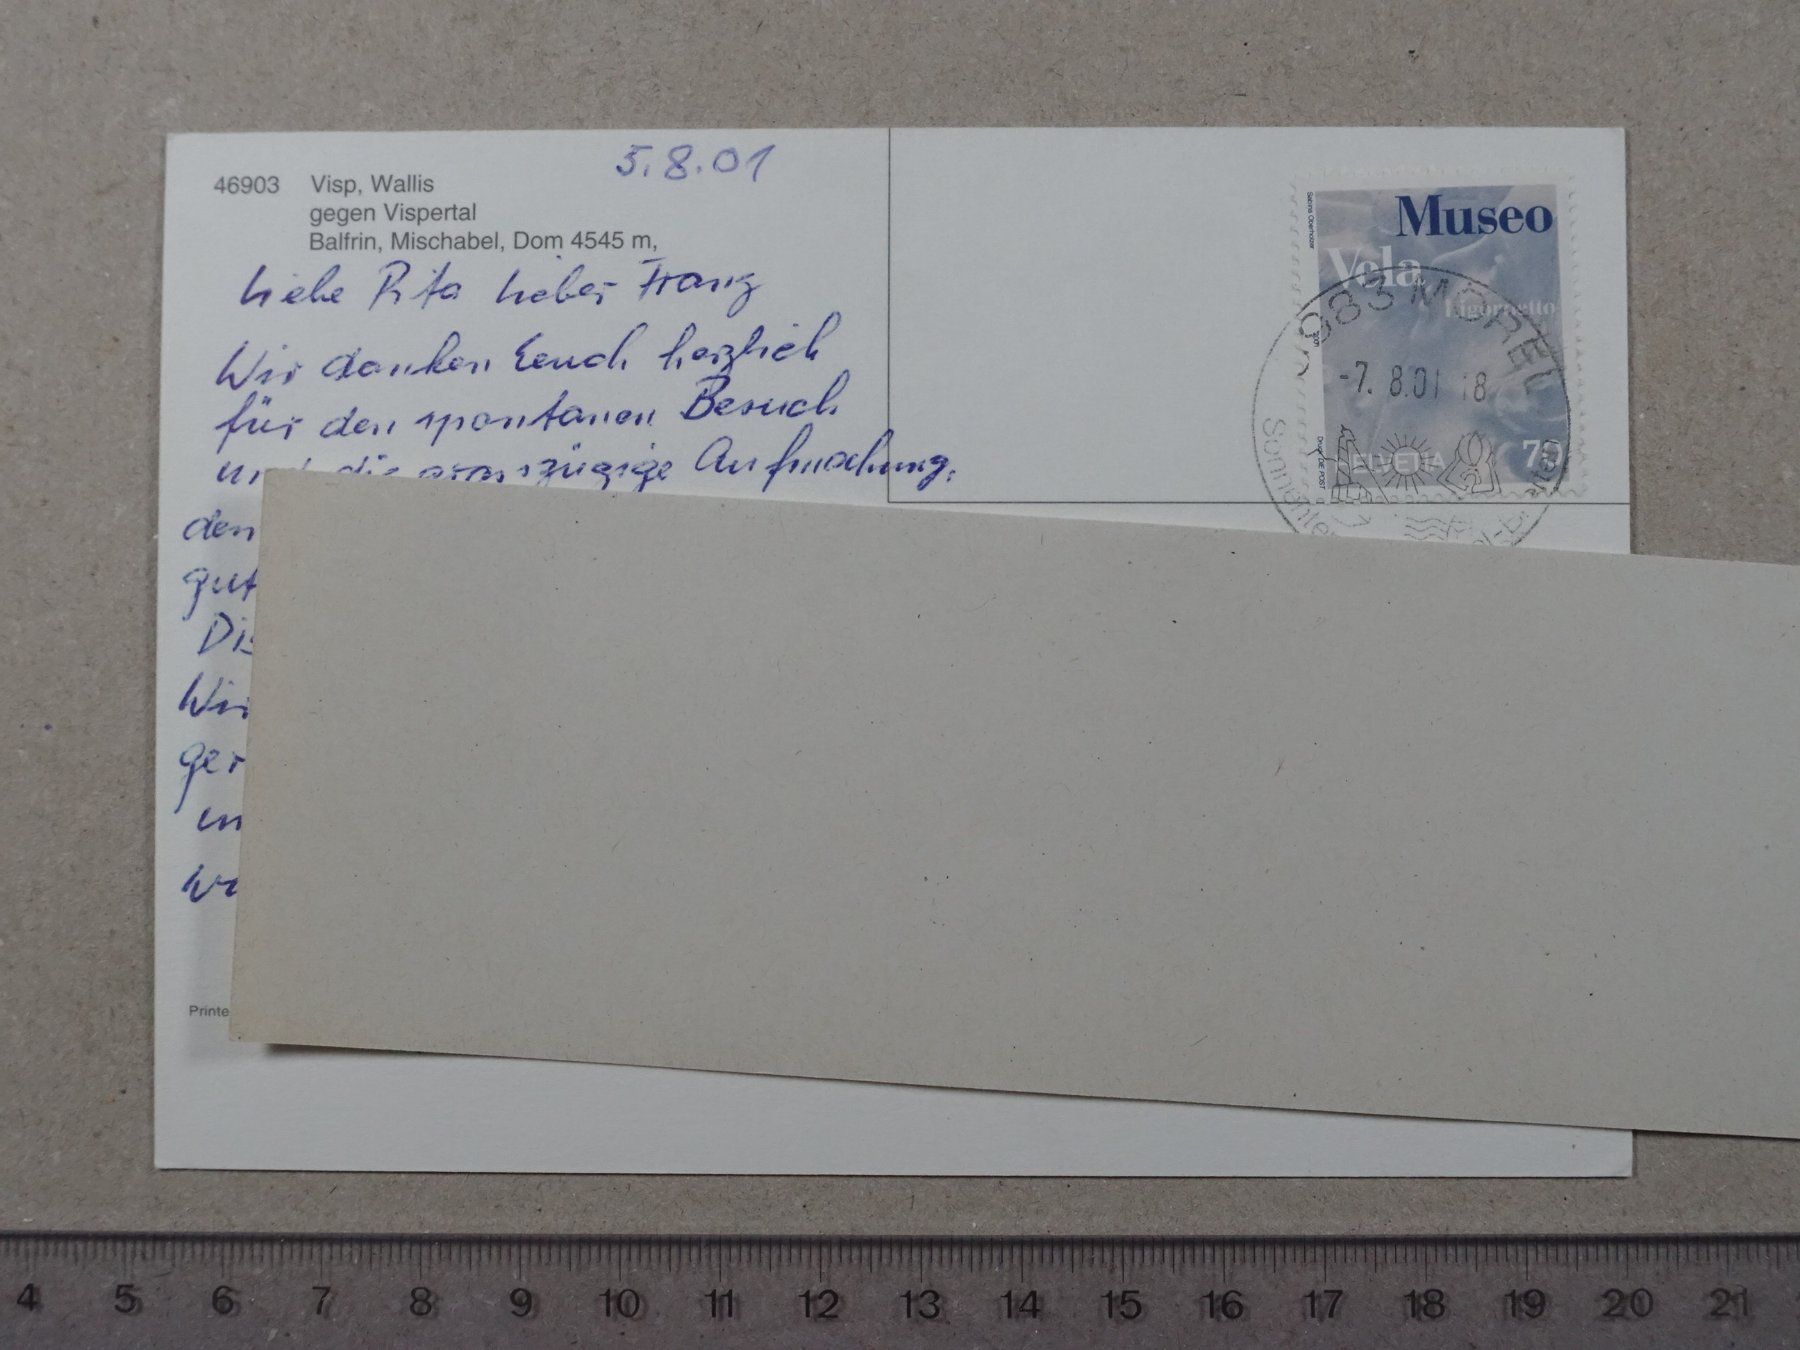 5.8.01
46903 Visp, Wallis
gegen Vispertal
Balfrin, Mischabel, Dom 4545 m,
Liebe Rita lieber Franz
Wir danken Euch herzlich
für den spontanen Besuch
und die grosszügige Aufmachung.
den
gut
Wir
Museo
Vela
Ligornetto
Sabina Oberholzer
2001
HELVETIA
70
Druck: DIE POST
3983 MÖREL
-7. 8.01 18
4 5 6 7 8 9 10 11 12 13 14 15 16 17 18 19 20 21